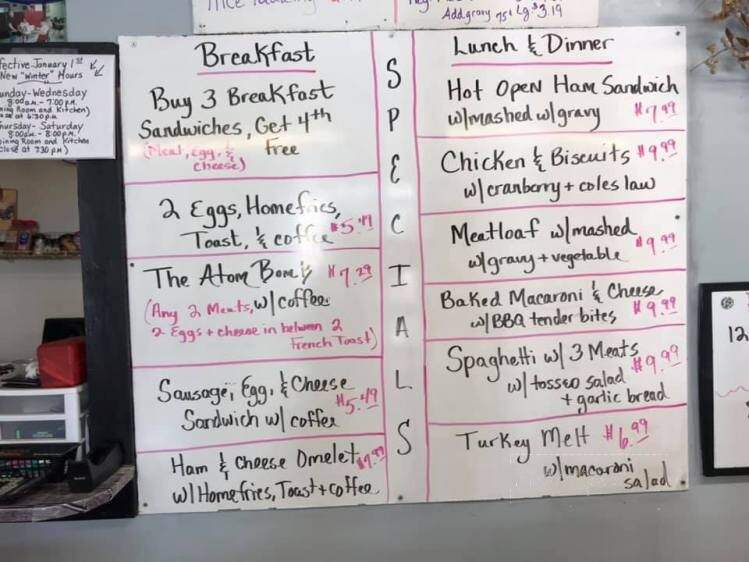 Add gravy 75¢ Lg $3.19
Effective January 1st
New "Winter" Hours
Sunday-Wednesday
8:00 a.m. - 7:00 p.m.
(Dining Room and Kitchen)
close at 6:30 p.m.
Thursday - Saturday
8:00 a.m. - 8:00 p.m.
Dining Room and Kitchen
close at 7:30 pm)
Breakfast
Buy 3 Breakfast
Sandwiches, Get 4th
Free
(Meat, Egg, &
cheese)
2 Eggs, Homefries,
Toast, & coffee $5.49
The Atom Bomb $7.29
(Any 2 Meats, w/ coffee
2 Eggs + cheese in between 2
French Toast)
Sausage, Egg, & Cheese
Sandwich w/ coffee $5.49
Ham & Cheese Omelet
w/ Homefries, Toast + coffee
SPECIALS
Lunch & Dinner
Hot Open Ham Sandwich
w/mashed w/gravy $7.99
Chicken & Biscuits $9.99
w/ cranberry + coles law
Meatloaf w/mashed
w/gravy + vegetable $9.99
Baked Macaroni & Cheese
w/ BBQ tender bites $9.99
Spaghetti w/ 3 Meats $9.99
w/ tossed salad
+ garlic bread
Turkey Melt $6.99
w/ macaroni
salad
12